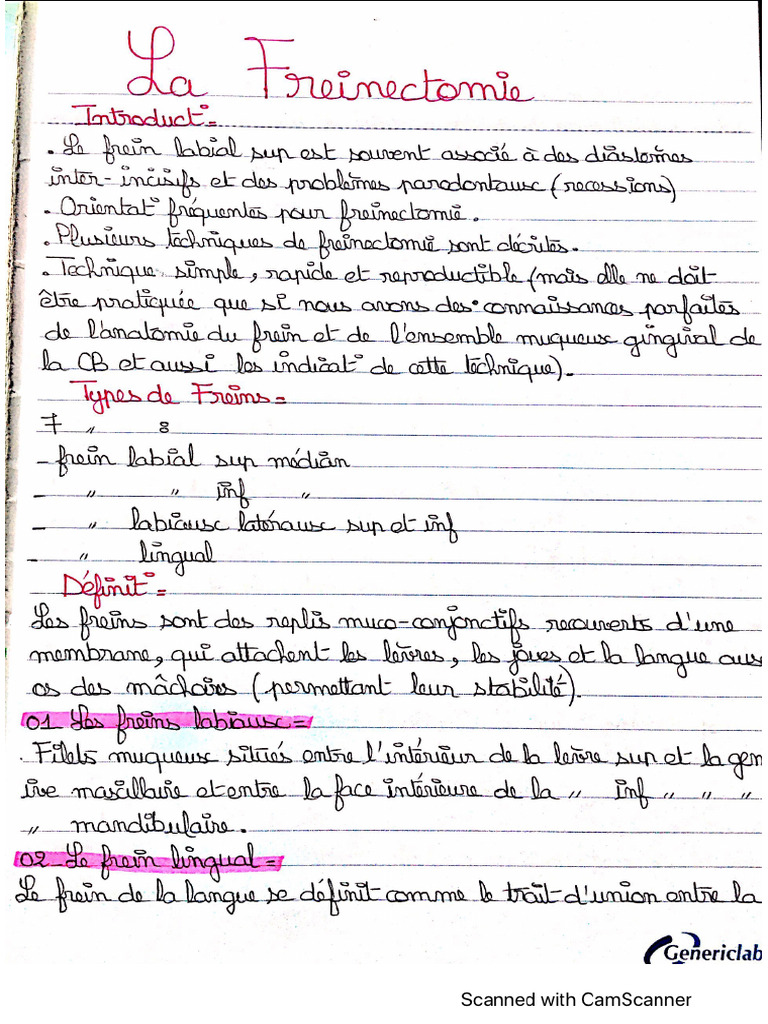 La Freinectomie
Introduct° =
. Le frein labial sup est souvent associé à des diastèmes
inter-incisifs et des problèmes parodontaux (recessions)
. Orientat° fréquentes pour freinectomie.
. Plusieurs techniques de freinectomie sont décrites.
. Technique simple, rapide et reproductible (mais elle ne doit
être pratiquée que si nous avons des connaissances parfaites
de l'anatomie du frein et de l'ensemble muqueux gingival de
la CB et aussi les indicat° de cette technique).
Types de Freins =
7 " 8
- frein labial sup médian
- " " inf "
- " labiaux latéraux sup et inf
- " lingual
Définit° =
Les freins sont des replis muco-conjonctifs recouverts d'une
membrane, qui attachent les lèvres, les joues et la langue aux
os des mâchoires (permettant leur stabilité).
01_Les freins labiaux =
. Filets muqueux situés entre l'intérieur de la lèvre sup et la gen
ive maxillaire et entre la face intérieure de la " inf " " "
" mandibulaire.
02_Le frein lingual =
Le frein de la langue se définit comme le trait d'union entre la
Genericlab
Scanned with CamScanner